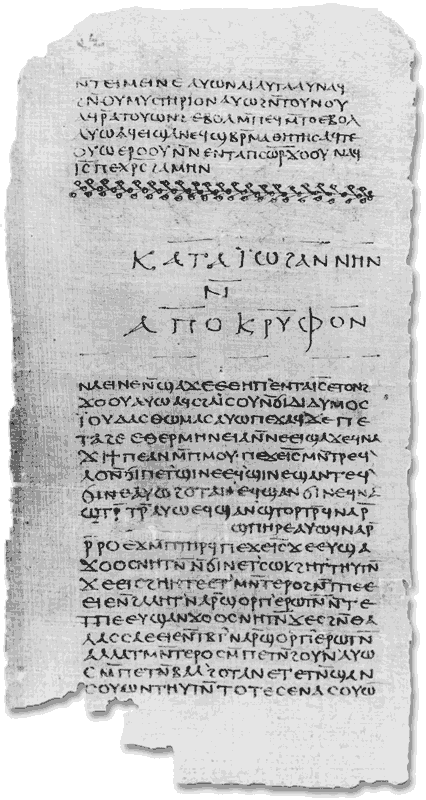 ⲛⲧⲉⲓⲙⲉⲓⲛⲉ ⲁⲩⲱ ⲛⲁⲓ ⲁⲩⲧⲁⲁⲩ ⲛⲁϥ
ϩⲛⲟⲩⲙⲩⲥⲧⲏⲣⲓⲟⲛ ⲁⲩⲱ ϩⲛ̄ⲧⲟⲩⲛⲟⲩ
ⲁϥⲣ̄ⲁⲧⲟⲩⲱⲛϩ ⲉⲃⲟⲗ ⲙ̄ⲡⲉϥⲙ̄ⲧⲟ ⲉⲃⲟⲗ
ⲁⲩⲱ ⲁϥⲉⲓ ϣⲁⲛⲉϥϣⲃⲣ̄ⲙⲁⲑⲏⲧⲏⲥ ⲁϥⲧⲉ
ⲟⲩⲱ ⲉⲣⲟⲟⲩ ⲛ̄ⲛⲉⲛⲧⲁⲡⲥⲱ̅ⲣ̅ ϫⲟⲟⲩ ⲛⲁϥ
ⲓ̅ⲥ̅ ⲡⲉⲭ̅ⲣ̅ⲥ̅ ϩⲁⲙⲏⲛ
ⲕⲁⲧⲁ ⲓ̈ⲱϩⲁⲛⲛⲏⲛ
ⲛ̄
ⲁⲡⲟⲕⲣⲩⲫⲟⲛ
ⲛⲁⲉⲓ ⲛⲉ ⲛ̄ϣⲁϫⲉ ⲉⲑⲏⲡ ⲉⲛⲧⲁⲓ̅ⲥ̅ ⲉⲧⲟⲛϩ
ϫⲟⲟⲩ ⲁⲩⲱ ⲁϥⲥϩⲁⲓⲥⲟⲩ ⲛ̄ϭⲓ ⲇⲓⲇⲩⲙⲟⲥ
ⲓ̈ⲟⲩⲇⲁⲥ ⲑⲱⲙⲁⲥ ⲁⲩⲱ ⲡⲉϫⲁϥ ϫⲉ ⲡⲉ
ⲧⲁϩⲉ ⲉⲑⲉⲣⲙⲏⲛⲉⲓⲁ ⲛ̄ⲛⲉⲉⲓϣⲁϫⲉ ϥⲛⲁ
ϫⲓ ϯⲡⲉ ⲁⲛ ⲙ̄ⲡⲙⲟⲩ ⲡⲉϫⲉ ⲓ̅ⲥ̅ ⲙⲛ̄ⲧⲣⲉϥ
ⲗⲟ ⲛ̄ϭⲓ ⲡⲉⲧϣⲓⲛⲉ ⲉϥϣⲓⲛⲉ ϣⲁⲛⲧⲉϥ
ϭⲓⲛⲉ ⲁⲩⲱ ϩⲟⲧⲁⲛ ⲉϥϣⲁⲛϭⲓⲛⲉ ϥⲛⲁ
ϣⲧⲣ̄ⲧⲣ̄ ⲁⲩⲱ ⲉϥϣⲁⲛϣⲧⲟⲣⲧⲣ̄ ϥⲛⲁⲣ̄
ϣⲡⲏⲣⲉ ⲁⲩⲱ ϥⲛⲁⲣ̄
ⲣ̄ⲣⲟ ⲉϫⲙ̄ ⲡⲧⲏⲣϥ ⲡⲉϫⲉ ⲓ̅ⲥ̅ ϫⲉ ⲉⲩϣⲁ
ϫⲟⲟⲥ ⲛⲏⲧⲛ̄ ⲛ̄ϭⲓ ⲛⲉⲧⲥⲱⲕ ϩⲏⲧ ⲧⲏⲩⲧⲛ̄
ϫⲉ ⲉⲓⲥϩⲏⲏⲧⲉ ⲉⲧⲙⲛ̄ⲧⲉⲣⲟ ϩⲛ̄ ⲧⲡⲉ ⲉ
ⲉⲓⲉ ⲛ̄ϩⲁⲗⲏⲧ ⲛⲁⲣ̄ ϣⲟⲣⲡ ⲉⲣⲱⲧⲛ̄ ⲛ̄ⲧⲉ
ⲧⲡⲉ ⲉⲩϣⲁⲛϫⲟⲟⲥ ⲛⲏⲧⲛ̄ ϫⲉ ⲥϩⲛ̄ ⲑⲁ
ⲗⲁⲥⲥⲁ ⲉⲉⲓⲉ ⲛ̄ⲧⲃⲧ ⲛⲁⲣ̄ ϣⲟⲣⲡ ⲉⲣⲱⲧⲛ̄
ⲁⲗⲗⲁ ⲧⲙⲛ̄ⲧⲉⲣⲟ ⲥⲙ̄ⲡⲉⲧⲛ̄ϩⲟⲩⲛ ⲁⲩⲱ
ⲥⲙ̄ⲡⲉⲧⲛ̄ⲃⲁⲗ ϩⲟⲧⲁⲛ ⲉⲧⲉⲧⲛ̄ϣⲁⲛ
ⲥⲟⲩⲱⲛ ⲧⲏⲩⲧⲛ̄ ⲧⲟⲧⲉ ⲥⲉⲛⲁⲥⲟⲩⲱ